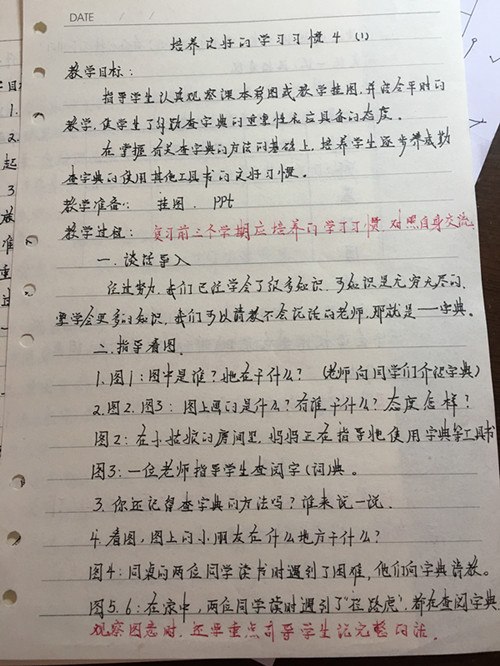 DATE / /
培养良好的学习习惯4 (1)
教学目标:
指导学生认真观察课本彩图或教学挂图,并结合平时的
教学,使学生了解勤查字典的重要性和应具备的态度。
在掌握有关查字典的方法的基础上,培养学生逐步养成勤
查字典的使用其他工具书的良好习惯。
教学准备: 挂图. PPt
教学过程: 复习前三个学期应培养的学习习惯,对照自身交流
一. 谈话导入
经过努力,我们已经学会了很多知识,可知识是无穷无尽的.
要学会更多的知识,我们可以请教不会说话的老师,那就是——字典。
二.指导看图.
1.图1:图中是谁?她在干什么? (老师向同学们介绍字典)
2.图2.图3: 图上画的是什么?有谁干什么?态度怎样?
图2:在小姑娘的房间里,妈妈正在指导她使用字典等工具书
图3:一位老师指导学生查阅字(词)典。
3.你还记得查字典的方法吗?谁来说一说.
4.看图,图上的小朋友在什么地方干什么?
图4:同桌的两位同学读书时遇到了困难,他们向字典请教。
图5.6:在家中,两位同学读时遇到了"拦路虎",都在查阅字典
观察图意时,还要重点引导学生说完整的话.